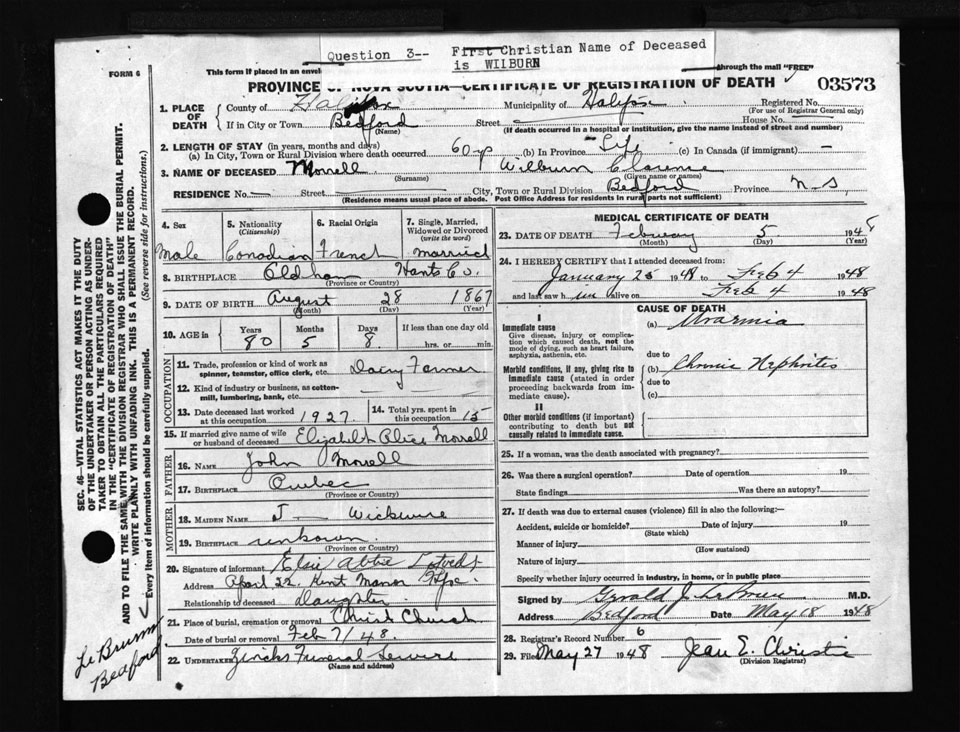 Question 3-- First Christian Name of Deceased
is WILBURN
FORM 6
This form if placed in an envel through the mail "FREE"
PROVINCE OF NOVA SCOTIA—CERTIFICATE OF REGISTRATION OF DEATH 03573
1. PLACE OF DEATH
County of Halifax Municipality of Halifax Registered No.
(For use of Registrar General only)
If in City or Town Bedford Street House No.
(Name) (If death occurred in a hospital or institution, give the name instead of street and number)
2. LENGTH OF STAY (in years, months and days)
(a) In City, Town or Rural Division where death occurred 60 yrs (b) In Province Life (c) In Canada (if immigrant) —
3. NAME OF DECEASED Morrell Wilburn Clarence
(Surname) (Given name or names)
RESIDENCE No. — Street City, Town or Rural Division Bedford Province N.S.
(Residence means usual place of abode. Post Office Address for residents in rural parts not sufficient)
4. Sex 5. Nationality 6. Racial Origin 7. Single, Married,
(Citizenship) Widowed or Divorced
(write the word)
Male Canadian French married
8. BIRTHPLACE Oldham Hants Co.
(Province or Country)
9. DATE OF BIRTH August 28 1867
(Month) (Day) (Year)
10. AGE in Years Months Days If less than one day old
80 5 8 hrs. or min.
OCCUPATION
11. Trade, profession or kind of work as
spinner, teamster, office clerk, etc. Dairy Farmer
12. Kind of industry or business, as cotton-
mill, lumbering, bank, etc.
13. Date deceased last worked
at this occupation 1927. 14. Total yrs. spent in
this occupation 15
15. If married give name of wife
or husband of deceased Elizabeth Alice Morrell
FATHER
16. NAME John Morrell
17. BIRTHPLACE Quebec
(Province or Country)
MOTHER
18. MAIDEN NAME J — Wickwire
19. BIRTHPLACE unkown.
(Province or Country)
20. Signature of informant Elsie Abbie
Address Apart. 22. Kent Manor Hfx.
Relationship to deceased Daughter
21. Place of burial, cremation or removal Christ Church
Date of burial or removal Feb 7/48.
22. UNDERTAKER Funeral Service
(Name and address)
MEDICAL CERTIFICATE OF DEATH
23. DATE OF DEATH February 5 1948
(Month) (Day) (Year)
24. I HEREBY CERTIFY that I attended deceased from:
January 25 1948 to Feb 4 1948
and last saw him alive on Feb 4 1948
CAUSE OF DEATH
I
Immediate cause
Give disease, injury or complica-
tion which caused death, not the
mode of dying, such as heart failure,
asphyxia, asthenia, etc.
(a) Uraemia
due to
Morbid conditions, if any, giving rise to
immediate cause (stated in order
proceeding backwards from im-
mediate cause).
(b) Chronic Nephritis
due to
(c)
II
Other morbid conditions (if important)
contributing to death but not
causally related to immediate cause.
25. If a woman, was the death associated with pregnancy?
26. Was there a surgical operation? Date of operation 19
State findings Was there an autopsy?
27. If death was due to external causes (violence) fill in also the following:—
Accident, suicide or homicide? Date of injury 19
(State which)
Manner of injury
(How sustained)
Nature of injury
Specify whether injury occurred in industry, in home, or in public place
Signed by Gerald J. LeBrun M.D.
Address Bedford Date May 18 1948
28. Registrar's Record Number 6
29. Filed May 27 1948 Jean E. Christie
(Division Registrar)
SEC. 46—VITAL STATISTICS ACT MAKES IT THE DUTY
OF THE UNDERTAKER OR PERSON ACTING AS UNDER-
TAKER TO OBTAIN ALL THE PARTICULARS REQUIRED
IN THE "CERTIFICATE OF REGISTRATION OF DEATH"
AND TO FILE THE SAME WITH THE DIVISION REGISTRAR WHO SHALL ISSUE THE BURIAL PERMIT.
WRITE PLAINLY WITH UNFADING INK. THIS IS A PERMANENT RECORD.
Every item of information should be carefully supplied. (See reverse side for instructions.)
Le Brun
Bedford